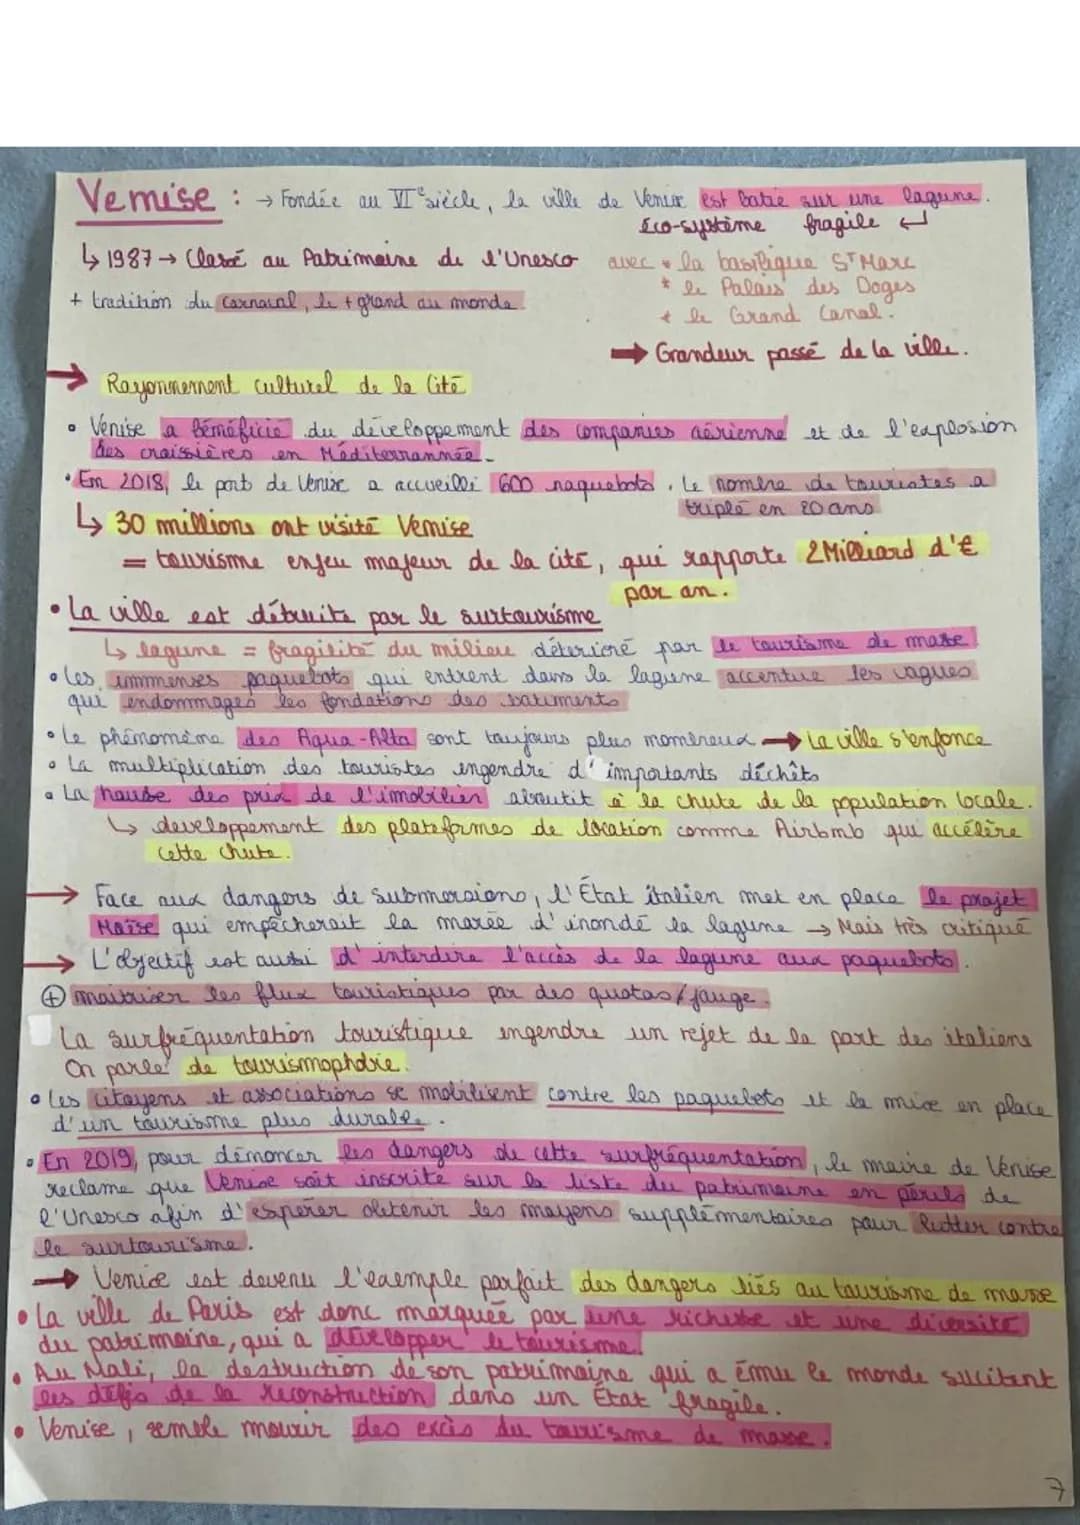 Venise : → Fondée au VIe siècle, la ville de Venise est batie sur une lagune.
Éco-système fragile ↵
↳ 1987 → Classé au Patrimoine de l'Unesco avec * la basilique St Marc
* le Palais des Doges
+ tradition du Carnaval, le + grand au monde.
* le Grand Canal.
➡ Grandeur passé de la ville.
→ Rayonnement culturel de la Cité
• Venise a bénéficié du développement des companies aérienne et de l'explosion
des croisières en Méditerrannée.
• En 2018, le port de Venise a accueilli 600 paquebots. Le nombre de touristes a
triplé en 20 ans
↳ 30 millions ont visité Venise
= tourisme enjeu majeur de la cité, qui rapporte 2 Milliard d'€
par an.
• La ville est détruite par le surtourisme
↳ lagune = fragilité du milieu déterioré par le tourisme de masse
• Les immenses paquebots qui entrent dans la lagune accentue les vagues
qui endommages les fondations des batiments
• Le phénomène des Aqua-Alta sont toujours plus nombreux → La ville s'enfonce
• La multiplication des touristes engendre d'importants déchêts
• La hausse des prix de l'imobilier aboutit à la chute de la population locale.
↳ developpement des plateformes de location comme Airbnb qui accélère
cette chute.
→ Face aux dangers de submersions, l'État italien met en place le projet
Moïse qui empêcherait la marée d'inondé la lagune → Mais très critiqué
→ L'objectif est aussi d'interdire l'accès de la lagune aux paquebots.
⊕ maitriser les flux touristiques par des quotas/jauge.
La surfréquentation touristique engendre un rejet de la part des italiens
On parle de tourismophobie.
• Les citoyens et associations se mobilisent contre les paquebots et la mise en place
d'un tourisme plus durable.
• En 2019, pour dénoncer les dangers de cette surfréquentation, le maire de Venise
reclame que Venise soit inscrite sur la liste du patrimoine en périls de
l'Unesco afin d'espérer obtenir les moyens supplémentaires pour lutter contre
le surtourisme.
→ Venise est devenu l'exemple parfait des dangers liés au tourisme de masse
• La ville de Paris est donc marquée par une richesse et une diversité
du patrimoine, qui a développer le tourisme.
• Au Mali, la destruction de son patrimoine qui a ému le monde sucitent
les défis de la reconstruction dans un État fragile.
• Venise, semble mourir des excès du tourisme de masse.
7